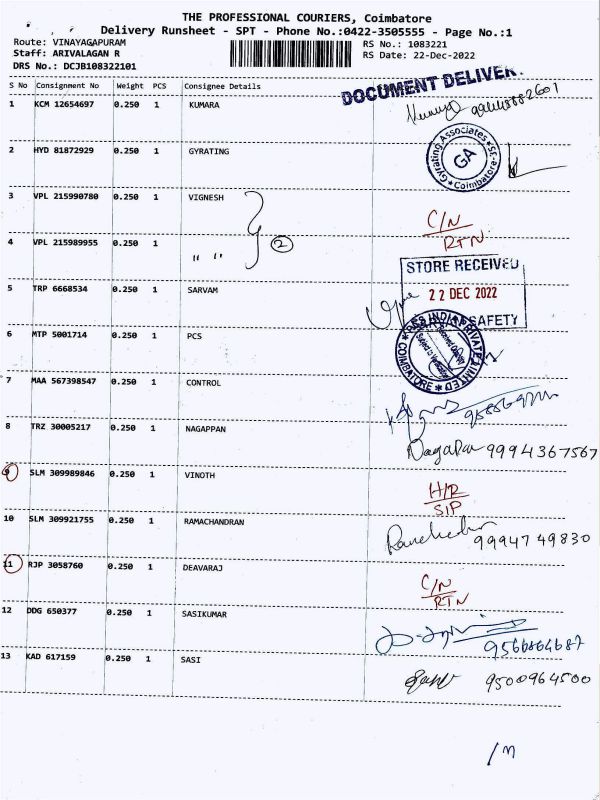 THE PROFESSIONAL COURIERS, Coimbatore
Delivery Runsheet - SPT - Phone No.:0422-3505555 - Page No.:1
Route: VINAYAGAPURAM
RS No.: 1083221
Staff: ARIVALAGAN R
RS Date: 22-Dec-2022
DRS No.: DCJB108322101
DOCUMENT DELIVER.
S No Consignment No Weight PCS Consignee Details
1 KCM 12654697 0.250 1 KUMARA
2 HYD 81872929 0.250 1 GYRATING
Gyrating Associates
GA
Coimbatore-35
3 VPL 215990780 0.250 1 VIGNESH
C/N
RTN
4 VPL 215989955 0.250 1 " " 2
STORE RECEIVED
5 TRP 6668534 0.250 1 SARVAM
22 DEC 2022
SAFETY
6 MTP 5001714 0.250 1 PCS
PCS INDIA PRIVATE LIMITED
COIMBATORE
7 MAA 567398547 0.250 1 CONTROL
8 TRZ 30005217 0.250 1 NAGAPPAN
Nagappan 9994367567
9 SLM 309989846 0.250 1 VINOTH
H/R
SIP
10 SLM 309921755 0.250 1 RAMACHANDRAN
9994749830
11 RJP 3058760 0.250 1 DEAVARAJ
C/N
RTN
12 DDG 650377 0.250 1 SASIKUMAR
9566864687
13 KAD 617159 0.250 1 SASI
9500964500